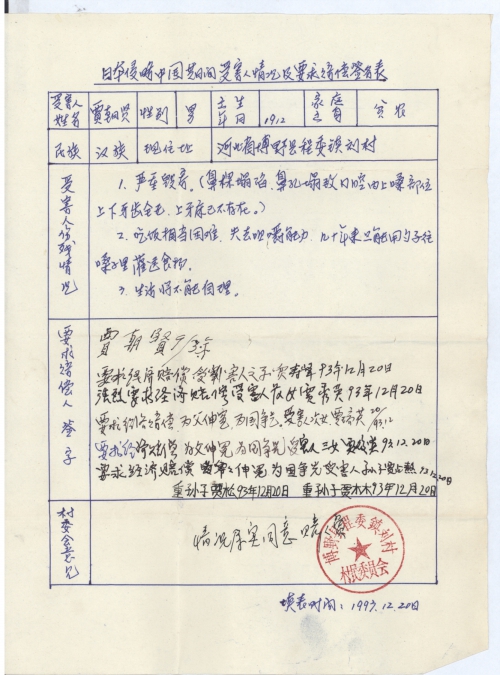 日本侵略中国期间受害人情况及要求赔偿签名表
受害人姓名 贾朝贤 性别 男 出生年月 1912 家庭出身 贫农
民族 汉族 现住址 河北省博野县程委镇刘村
受害人伤残情况
1. 严重毁容。(鼻梁塌陷 鼻孔塌致口腔内上嗓部位
上下牙齿全无,上牙床已不存在。)
2. 吃饭相当困难,失去咀嚼能力,几十年来只能用勺子往
嗓子里灌送食物。
3. 生活将不能自理。
要求赔偿人签字
贾朝賢
要求经济赔偿 受害人之子 贾 93年12月20日
强烈要求经济赔偿 受害人长女贾秀英 93年12月20日
要求经济赔偿 为父伸冤 为国争光 受害人次女
要求经济赔偿 为父伸冤 为国争光 受害人三女 93.12.20日
要求经济赔偿 伸冤 为国争光 受害人孙子贾占熬 93.12.20日
重孙子贾松 93年12月20日 重孙子贾木木 93年12月20日
村委会意见
情况属实同意赔
博野县程委镇刘村
村民委员会
填表时间:1993.12.20日